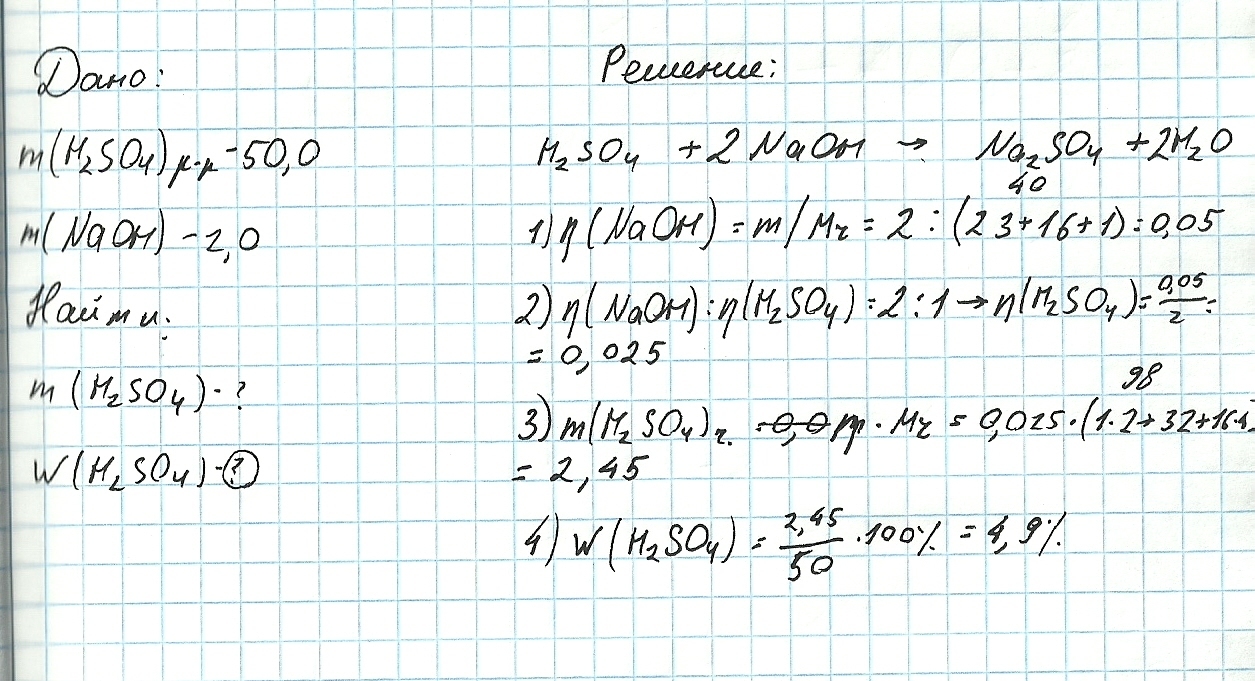 Дано:
m(H₂SO₄) р-р - 50,0
m(NaOH) - 2,0
Найти:
m(H₂SO₄) - ?
W(H₂SO₄) - ?
Решение:
H₂SO₄ + 2NaOH → Na₂SO₄ + 2H₂O
40
1) η(NaOH) = m/Mr = 2 : (23+16+1) = 0,05
2) η(NaOH) : η(H₂SO₄) = 2 : 1 → η(H₂SO₄) = 0,05/2 =
= 0,025
98
3) m(H₂SO₄) · Mr = 0,025 · (1·2+32+16·4)
= 2,45
4) W(H₂SO₄) = 2,45/50 · 100% = 4,9%